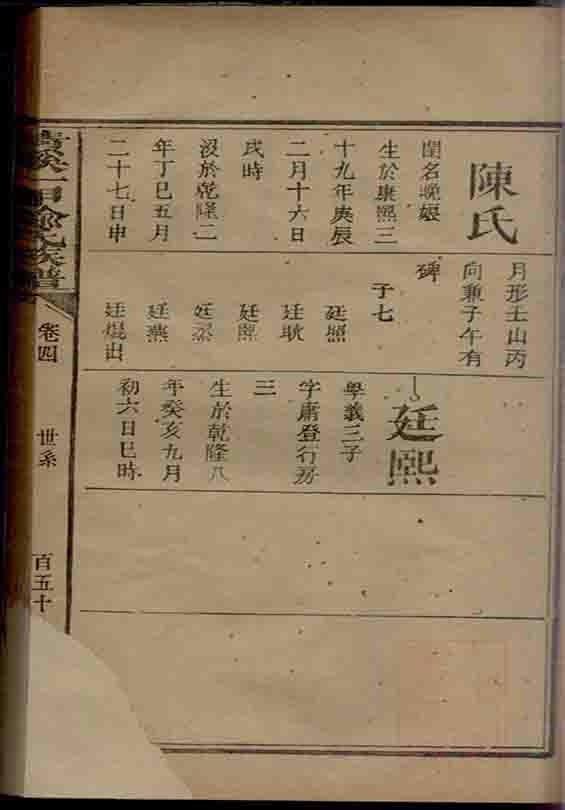 陳氏
閨名晚娘
生於康熙三
十九年庚辰
二月十六日
戌時
沒於乾隆二
年丁巳五月
二十七日申
月形土山丙
向兼子午有
碑
子七
廷照
廷耿
廷熙
廷烝
廷燕
廷焜出
廷熙
學義三子
字庸登行房
三
生於乾隆八
年癸亥九月
初六日巳時
氏族譜
卷四
世系
百五十